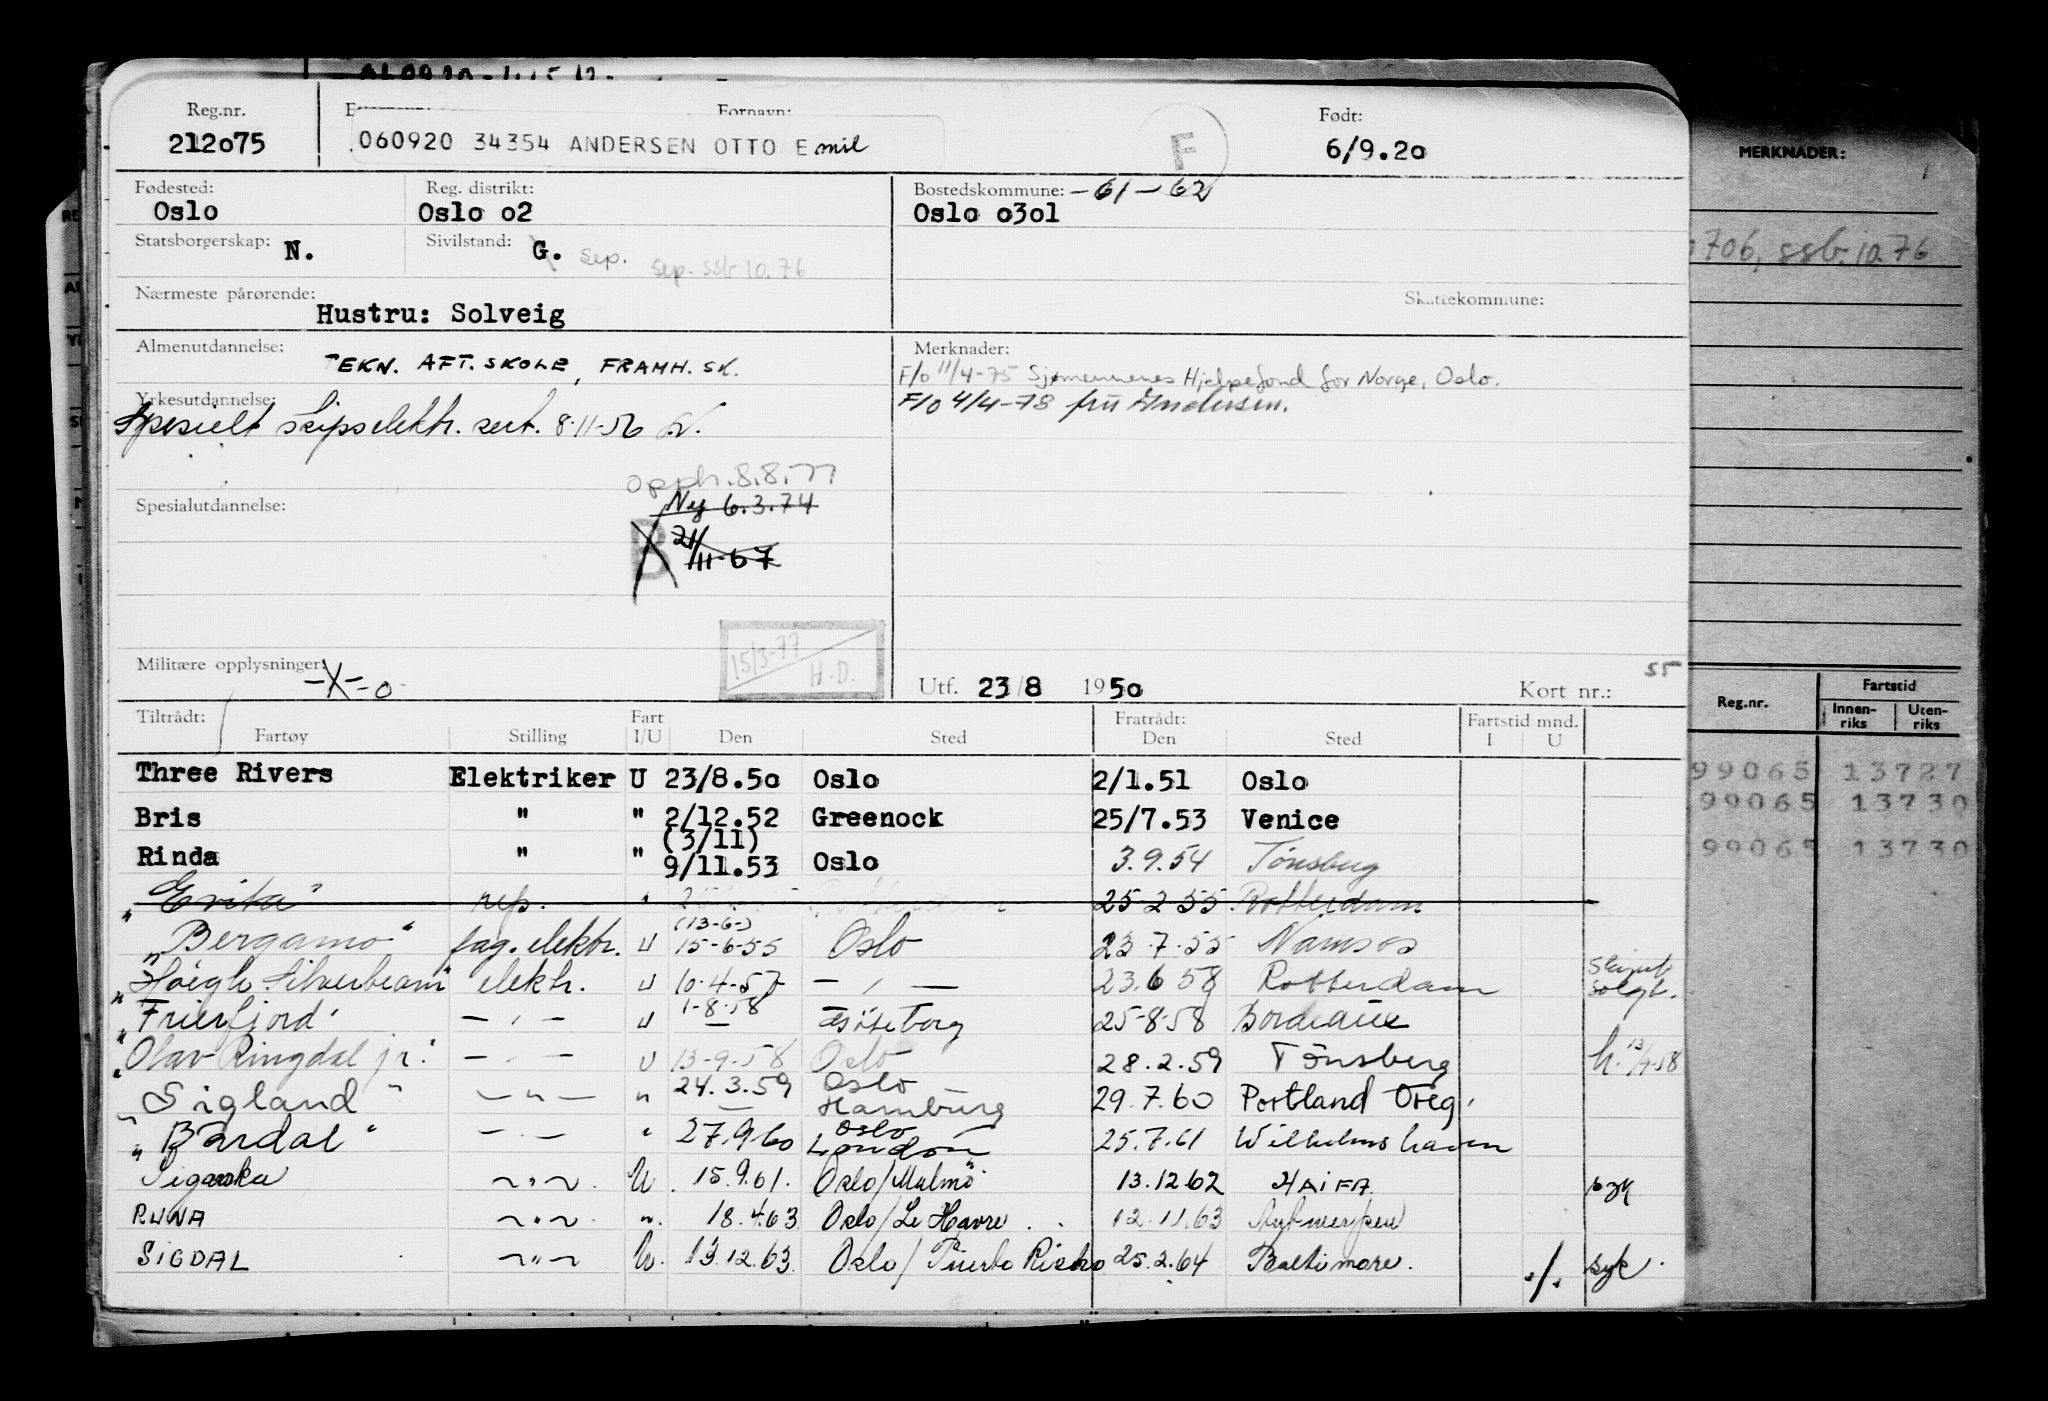 Reg.nr. Fornavn: Født:
212o75 060920 34354 ANDERSEN OTTO Emil F 6/9.2o
Fødested: Reg. distrikt: Bostedskommune: -61-62
Oslo Oslo o2 Oslo o3ol
Statsborgerskap: N. Sivilstand: G. Sep. Sep. ssb 10.76
Nærmeste pårørende: Skattekommune:
Hustru: Solveig
Almenutdannelse: TEKN. AFT. SKOLE, FRAMH. SK.
Merknader:
F/o 11/4-75 Sjømennenes Hjelpefond for Norge, Oslo.
Yrkesutdannelse: F/o 4/4-78 fru Andersen.
Spesielt skipselektr. sert. 8-11-56
opph. 8.8.77
Spesialutdannelse: Ny 6.3.74
B 21/11-67
15/3-77 H.D.
Militære opplysninger: -X-o
Utf. 23/8 195o Kort nr.: 55
Tiltrådt: Fart Fratrådt: Fartstid mnd.
Fartøy Stilling I/U Den Sted Den Sted I U
Three Rivers Elektriker U 23/8.5o Oslo 2/1.51 Oslo
Bris " " 2/12.52 Greenock 25/7.53 Venice
(3/11)
Rinda " " 9/11.53 Oslo 3.9.54 Tønsberg
"Evita" rep. " 25-2-55 Rotterdam
(13-6-)
"Bergamo" fag. elektr. U 15-6-55 Oslo 23.7.55 Namsos
"Höegh Silverbeam" elektr. U 10-4-57 - " - 23.6 58 Rotterdam Skipet solgt.
"Frierfjord" - " - U 1-8-58 Gøteborg 25-8-58 Bordeaux
"Olav Ringdal jr." - " - U 13-9-58 Oslo 28.2.59 Tönsberg
"Sigland" - " - " 24.3.59 Oslo Hamburg 29.7.60 Portland Oreg.
"Bårdal" - " - " 27.9.60 Oslo London 25.7.61 Wilhelmshaven
Siganka ~ " ~ U. 15.9.61. Oslo/Malmö. 13.12 62 HAIFA syk
RUNA ~ " ~ " 18.4.63 Oslo/Le Havre 12.11.63 Antwerpen
SIGDAL ~ " ~ U. 13.12.63. Oslo/Puerto Richo 25.2.64 Baltimore. ./. syk.
MERKNADER:
706, ssb. 10.76
Reg.nr. Fartstid
Innen-riks Uten-riks
99065 13727
99065 13730
99065 13730